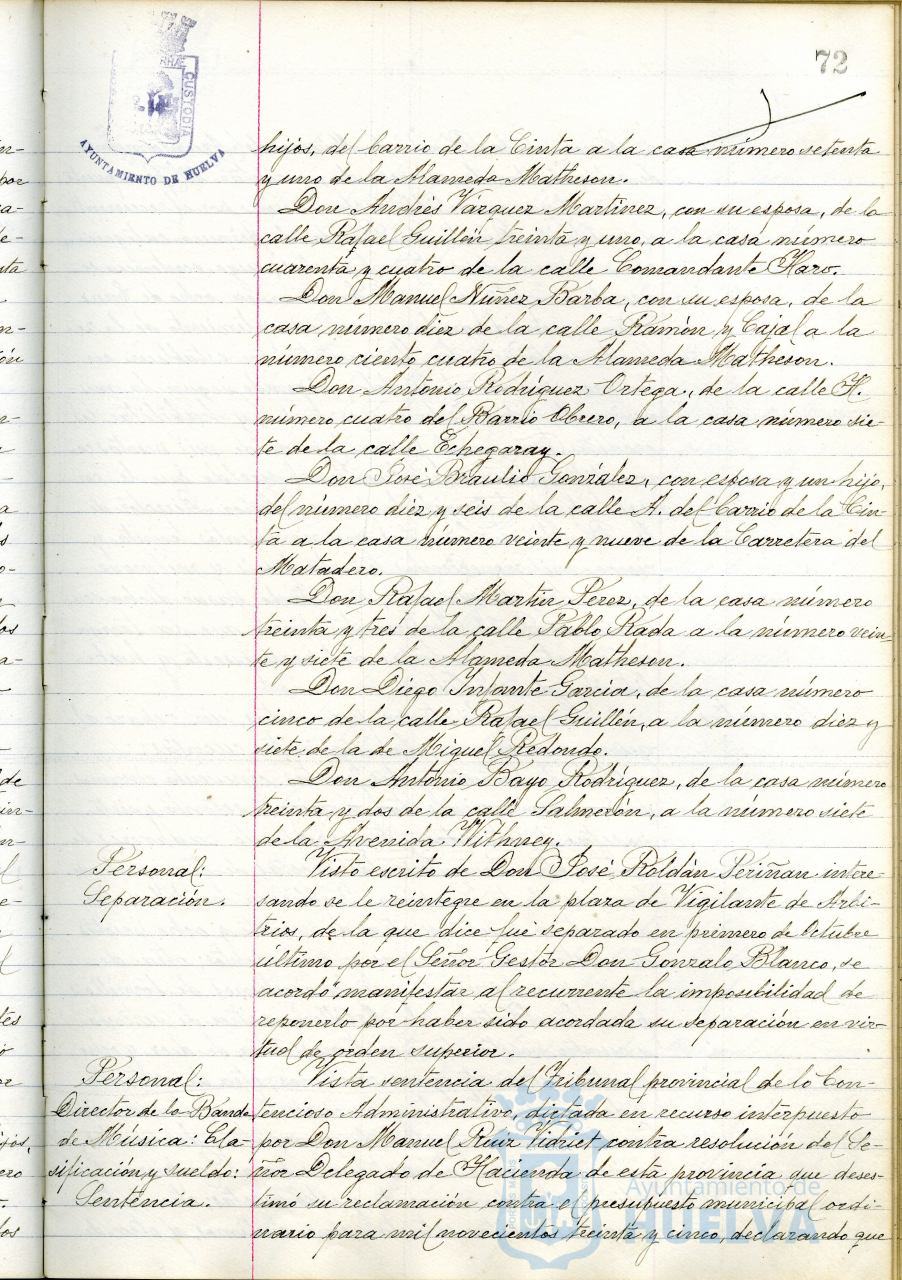 72
CUSTODIA
AYUNTAMIENTO DE HUELVA
hijos, del barrio de la Cinta a la casa número setenta
y uno de la Alameda Matheson.
Don Andrés Vázquez Martinez, con su esposa, de la
calle Rafael Guillén treinta y uno, a la casa número
cuarenta y cuatro de la calle Comandante Haro.
Don Manuel Núñez Barba, con su esposa, de la
casa número diez de la calle Ramón y Cajal a la
número ciento cuatro de la Alameda Matheson.
Don Antonio Rodríguez Ortega, de la calle H.
número cuatro del Barrio Obrero, a la casa número sie-
te de la calle Echegaray.
Don José Braulio González, con esposa y un hijo,
del número diez y seis de la calle A. del barrio de la Cin-
ta a la casa número veinte y nueve de la Carretera del
Matadero.
Don Rafael Martín Pérez, de la casa número
treinta y tres de la calle Pablo Rada a la número vein
te y siete de la Alameda Matheson.
Don Diego Infante García, de la casa número
cinco de la calle Rafael Guillén, a la número diez y
siete de la de Miguel Redondo.
Don Antonio Bayo Rodríguez, de la casa número
treinta y dos de la calle Salmerón, a la número siete
de la Avenida Withney.
Personal:
Separación.
Visto escrito de Don José Roldán Periñan intere-
sando se le reintegre en la plaza de Vigilante de Arbi-
trios, de la que dice fué separado en primero de Octubre
último por el Señor Gestor Don Gonzalo Blanco, se
acordó manifestar al recurrente la imposibilidad de
reponerlo por haber sido acordada su separación en vir-
tud de orden superior.
Personal:
Director de la Banda
de Música: Cla-
sificación y sueldo:
Sentencia.
Vista sentencia del Tribunal provincial de lo Con-
tencioso Administrativo, dictada en recurso interpuesto
por Don Manuel Ruiz Vidriet contra resolución del Se-
ñor Delegado de Hacienda de esta provincia que deses-
timó su reclamación contra el presupuesto municipal ordi-
nario para mil novecientos treinta y cinco, declarando que
Ayuntamiento de
HUELVA